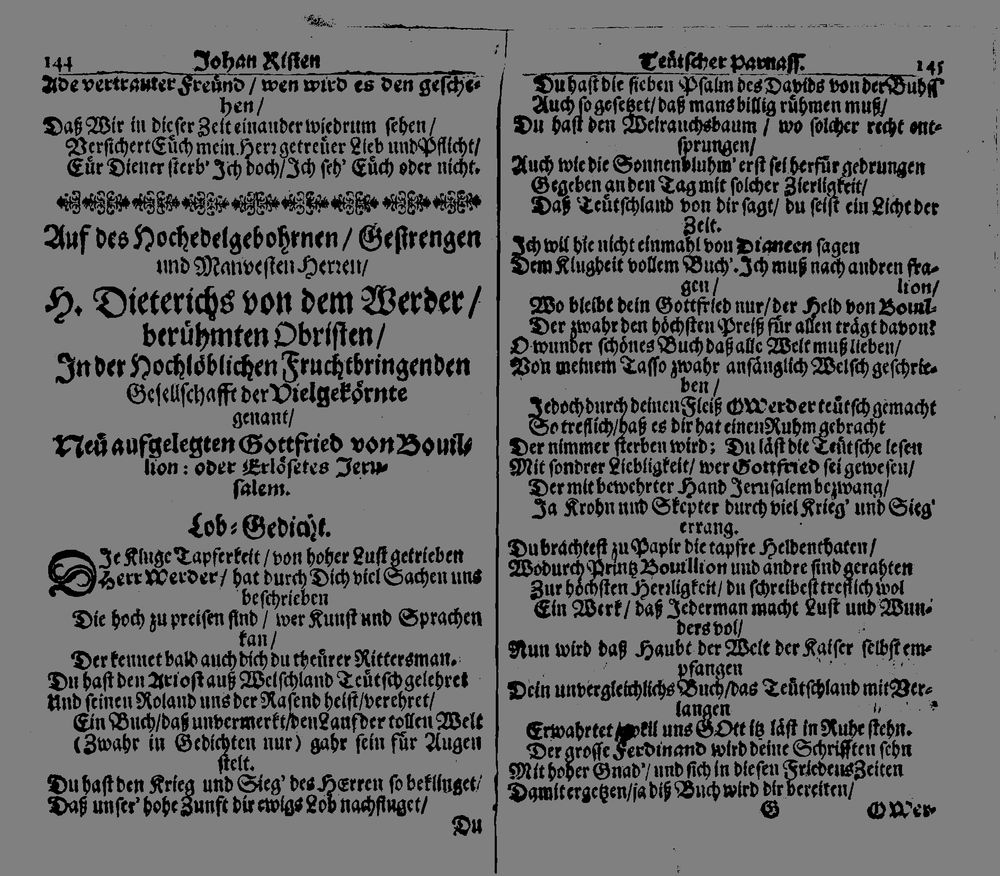 144 Johan Risten
Ade vertrauter Freünd / wen wird es den gesche-
hen /
Daß Wir in dieser Zeit einander wiedrum sehen /
Versichert Eüch mein Herr getreüer Lieb und Pflicht /
Eür Diener sterb' Ich doch / Ich seh' Eüch oder nicht.
Auf des Hochedelgebohrnen / Gestrengen
und Manvesten Herren /
H. Dieterichs von dem Werder /
berühmten Obristen /
In der Hochlöblichen Fruchtbringenden
Gesellschafft der Vielgekörnte
genant /
Neü aufgelegten Gottfried von Bouil-
lion: oder Erlösetes Jeru-
salem.
Lob-Gedicht.
DIe Kluge Tapferkeit / von hoher Lust getrieben
Herr Werder / hat durch Dich viel Sachen uns
beschrieben
Die hoch zu preisen sind / wer Kunst und Sprachen
kan /
Der kennet bald auch dich du theürer Rittersman.
Du hast den Ariost auß Welschland Teütsch gelehret
Und seinen Roland uns der Rasend heist / verehret /
Ein Buch / daß unvermerkt / den Lauf der tollen Welt
(Zwahr in Gedichten nur) gahr fein für Augen
stelt.
Du hast den Krieg und Sieg' des HErren so beklinget /
Daß unser' hohe Zunft dir ewigs Lob nachsinget /
Du
Teütscher Parnass. 145
Du hast die sieben Psalm des Davids von der Buhss
Auch so gesetzet / daß mans billig rühmen muß /
Du hast den Weirauchsbaum / wo solcher recht ent-
sprungen /
Auch wie die Sonnenbluhm' erst sei herfür gedrungen
Gegeben an den Tag mit solcher Zierligkeit /
Daß Teütschland von dir sagt / du seist ein Licht der
Zeit.
Ich wil hie nicht einmahl von Dianeen sagen
Dem Klugheit vollem Buch'. Ich muß nach andren fra-
gen / lion /
Wo bleibt dein Gottfried nur / der Held von Bouil-
Der zwahr den höchsten Preiß für allen trägt davon?
O wunder schönes Buch daß alle Welt muß lieben /
Von meinem Tasso zwahr anfänglich Welsch geschrie-
ben /
Jedoch durch deinen Fleiß O Werder teütsch gemacht
So treflich / daß es dir hat einen Ruhm gebracht
Der nimmer sterben wird; Du läst die Teütsche lesen
Mit sondrer Liebligkeit / wer Gottfried sei gewesen /
Der mit bewehrter Hand Jerusalem bezwang /
Ja Krohn und Skepter durch viel Krieg' und Sieg'
errang.
Du brachtest zu Papir die tapfre Heldenthaten /
Wodurch Printz Bouillion und andre sind gerahten
Zur höchsten Herrligkeit / du schreibest treflich wol
Ein Werk / daß Jederman macht Lust und Wun-
ders vol /
Nun wird daß Haubt der Welt der Kaiser selbst em-
pfangen
Dein unvergleichlichs Buch / das Teütschland mit Ver-
langen
Erwahrtet / weil uns GOtt itz läst in Ruhe stehn.
Der grosse Ferdinand wird deine Schrifften sehn
Mit hoher Gnad' / und sich in diesen FriedensZeiten
Damit ergetzen / ja diß Buch wird dir bereiten /
G O Wer-